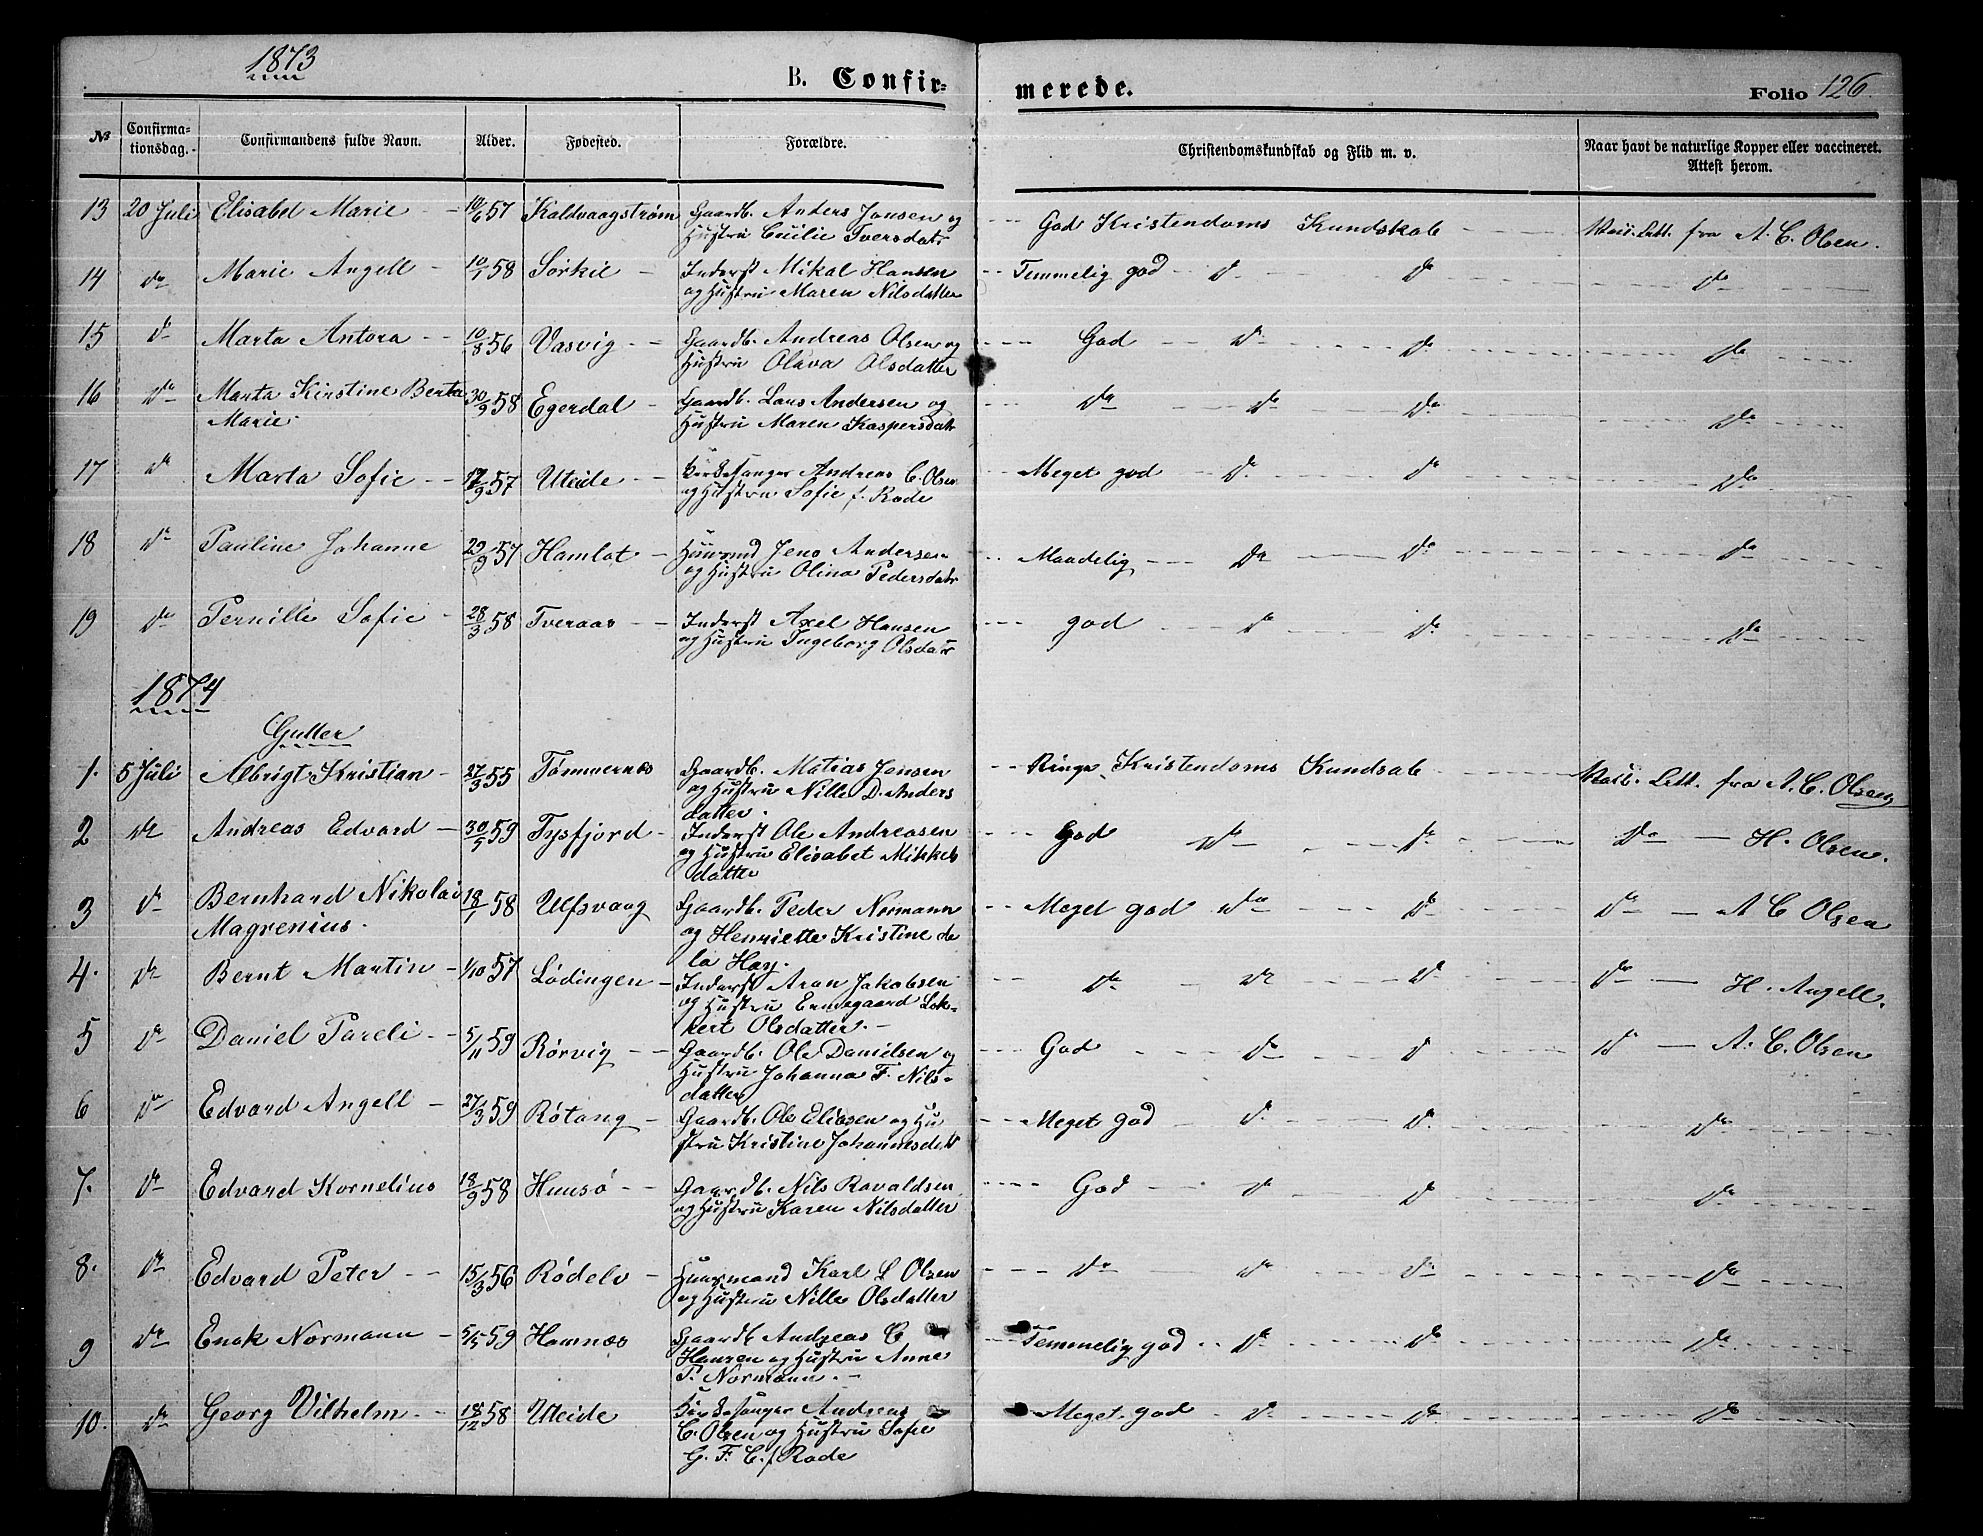 1873
B. Confir-
merede.
Folio 126
No
Confirma-
tionsdag.
Confirmandens fulde Navn.
Alder.
Fødested.
Forældre.
Christendomskundskab og Flid m. v.
Naar havt de naturlige Kopper eller vaccineret.
Attest herom.
13 20 Juli Elisabet Marie 10/6 57 Kaldvaagstrøm Gaardb. Anders Jonsen og God Kristendoms Kundskab Vacc. Att. fra A. C. Olsen.
Hustru Cecilie Iversdatr
14 do Marie Angell 10/1 58 Sørkil Inderst Mikal Hansen Temmelig god do do do
og Hustru Maren Nilsdatter
15 do Marta Antora 10/8 56 Vasvig Gaardb. Andreas Olsen og God do do do
Hustru Oliva Olsdatter
16 do Marta Kirstine Berta 30/9 58 Egerdal Gaardb. Lars Andersen og do do do do
Marie Hustru Maren Kaspersdatr
17 do Marta Sofie 17/9 57 Uteide Kirkesanger Andreas C. Olsen Meget god do do do
og Hustru Sofie f. Rode
18 do Pauline Johanne 29/9 57 Hamlot Husmand Jens Andersen Maadelig do do do
og Hustru Olina Pedersdatr
19 do Pernille Sofie 28/3 58 Tveraas Inderst Axel Hansen god do do do
og Hustru Ingeborg Olsdatr
1874
Gutter
1. 5 Juli Albrigt Kristian 27/3 55 Tømmernæs Gaardb. Matias Jensen Ringe Kristendoms Kundsab Vacc. Att. fra A. C. Olsen
og Hustru Nille D. Anders
datter.
2 do Andreas Edvard 30/5 59 Tysfjord Inderst Ole Andreasen God do do do H. Olsen.
og Hustru Elisabet Mikkels
datter
3 do Bernhard Nikolai 18/1 58 Ulfsvaag Gaardb. Peder Normann Meget god do do do A C Olsen
Magrenius. og Henriette Kristine de
la Hay.
4. do Bernt Martin 1/10 57 Lødingen Inderst Aron Jakobsen do do do do H. Angell.
og Hustru Ermegaard Lok-
kert Olsdatter.
5 do Daniel Pareli 5/11 59 Rørvig Gaardb. Ole Danielsen og God do do do A. C. Olsen
Hustru Johanna F. Nils-
datter
6 do Edvard Angell 27/3 59 Røtang Gaardb. Ole Eliasen og Hu Meget god do do do
stru Kristine Johannesdatr
7. do Edvard Kornelius 18/9 58 Hunsø Gaardb. Nils Ravaldsen God do do do
og Hustru Karen Nilsdatter
8. do Edvard Peter 15/3 56 Rødelv Huusmand Karl L Olsen do do do do
og Hustru Nille Olsdatter
9 do Enok Normann 5/5 59 Hamnæs Gaardb Andreas C Temmelig god do do do
Hansen og Hustru Anne
P. Normann.
10. do Georg Vilhelm 18/12 58 Uteide Kirkesanger Andreas Meget god do do do
C. Olsen og Hustru Sofie
G. F. C. f Rode